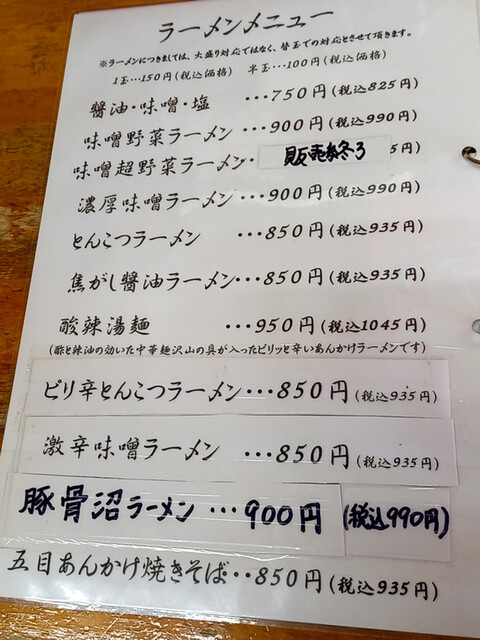 ラーメンメニュー
※ラーメンにつきましては、大盛り対応ではなく、替玉での対応とさせて頂きます。
1玉…150円(税込価格) 半玉…100円(税込価格)
醤油・味噌・塩 …750円(税込825円)
味噌野菜ラーメン…900円(税込990円)
味噌超野菜ラーメン・ 販売終了 5円)
濃厚味噌ラーメン…900円(税込990円)
とんこつラーメン …850円(税込935円)
焦がし醤油ラーメン…850円(税込935円)
酸辣湯麺 …950円(税込1045円)
(酢と辣油の効いた中華麺沢山の具が入ったピリッと辛いあんかけラーメンです)
ピリ辛とんこつラーメン…850円(税込935円)
激辛味噌ラーメン …850円(税込935円)
豚骨沼ラーメン…900円(税込990円)
五目あんかけ焼きそば‥850円(税込935円)